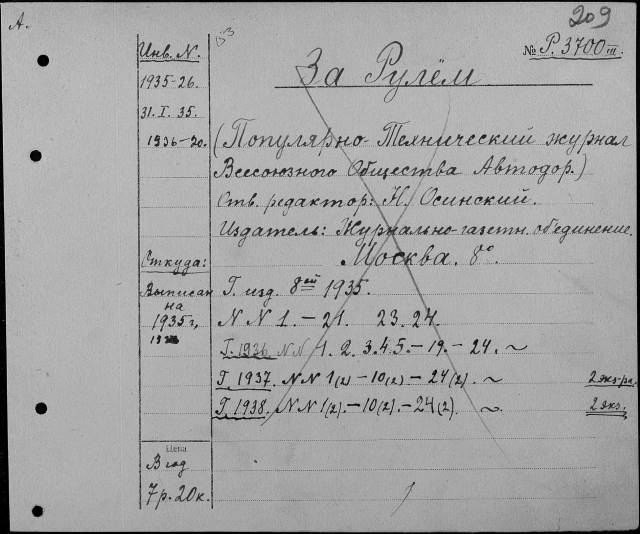 А.
209
Инв. N.
№ Р. 3700 III.
1935-26.
За Рулём
31. I. 35.
1936-20.
(Популярно-Технический журнал
Всесоюзного Общества Автодор.)
Отв. редактор: Н. Осинский.
Издатель: Журнально-газетн. объединение.
Откуда:
Москва. 8°.
Выписан
на
1935 г,
Г. изд. 8ой 1935.
N N 1. – 21. 23. 24.
Г. 1936. N N 1. 2. 3. 4. 5. – 19. – 24. ~
Г. 1937. N N 1(2) – 10(2) – 24(2). ~ 2 экз-ра.
Г. 1938. N N 1(2). – 10(2). – 24(2). ~ 2 экз.
Цена
В год
7 р. 20 к.